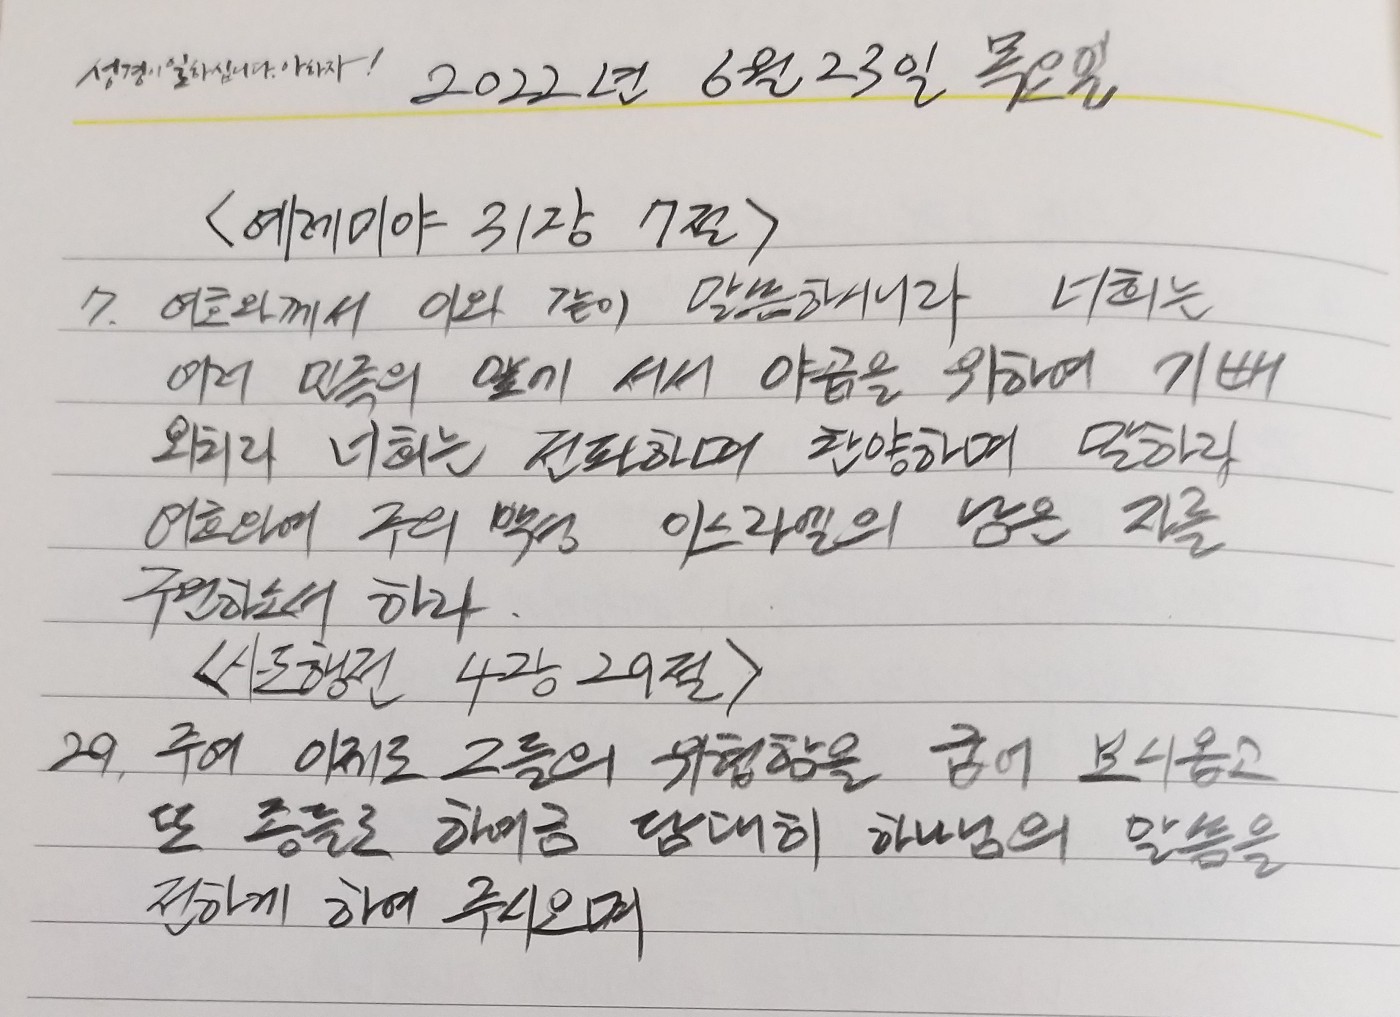 성경이 일하십니다. 아하자! 2022년 6월 23일 목요일
<예레미야 31장 7절>
7. 여호와께서 이와 같이 말씀하시니라 너희는
여러 민족의 앞에 서서 야곱을 위하여 기뻐
외치라 너희는 전파하며 찬양하며 말하라
여호와여 주의 백성 이스라엘의 남은 자를
구원하소서 하라.
<사도행전 4장 29절>
29. 주여 이제도 그들의 위협함을 굽어 보시옵고
또 종들로 하여금 담대히 하나님의 말씀을
전하게 하여 주시오며